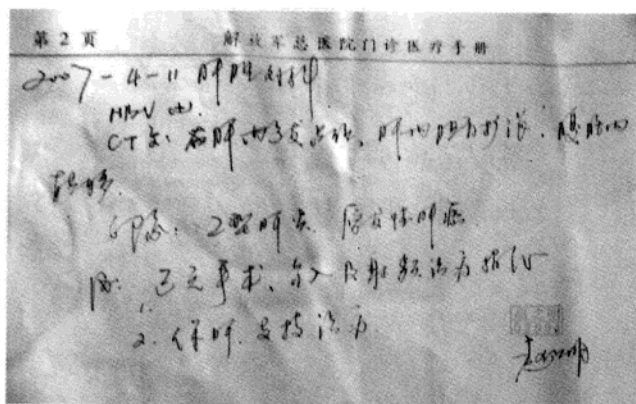 第2页 解放军总医院门诊医疗手册
2007-4-11 肝胆外科
HBV(+)
CT示：右肝内多发占位、肝内胆管扩张、腹腔内
印象：乙型肝炎 原发性肝癌
1. 已无手术、介入及射频治疗指征
2. 保肝、支持治疗